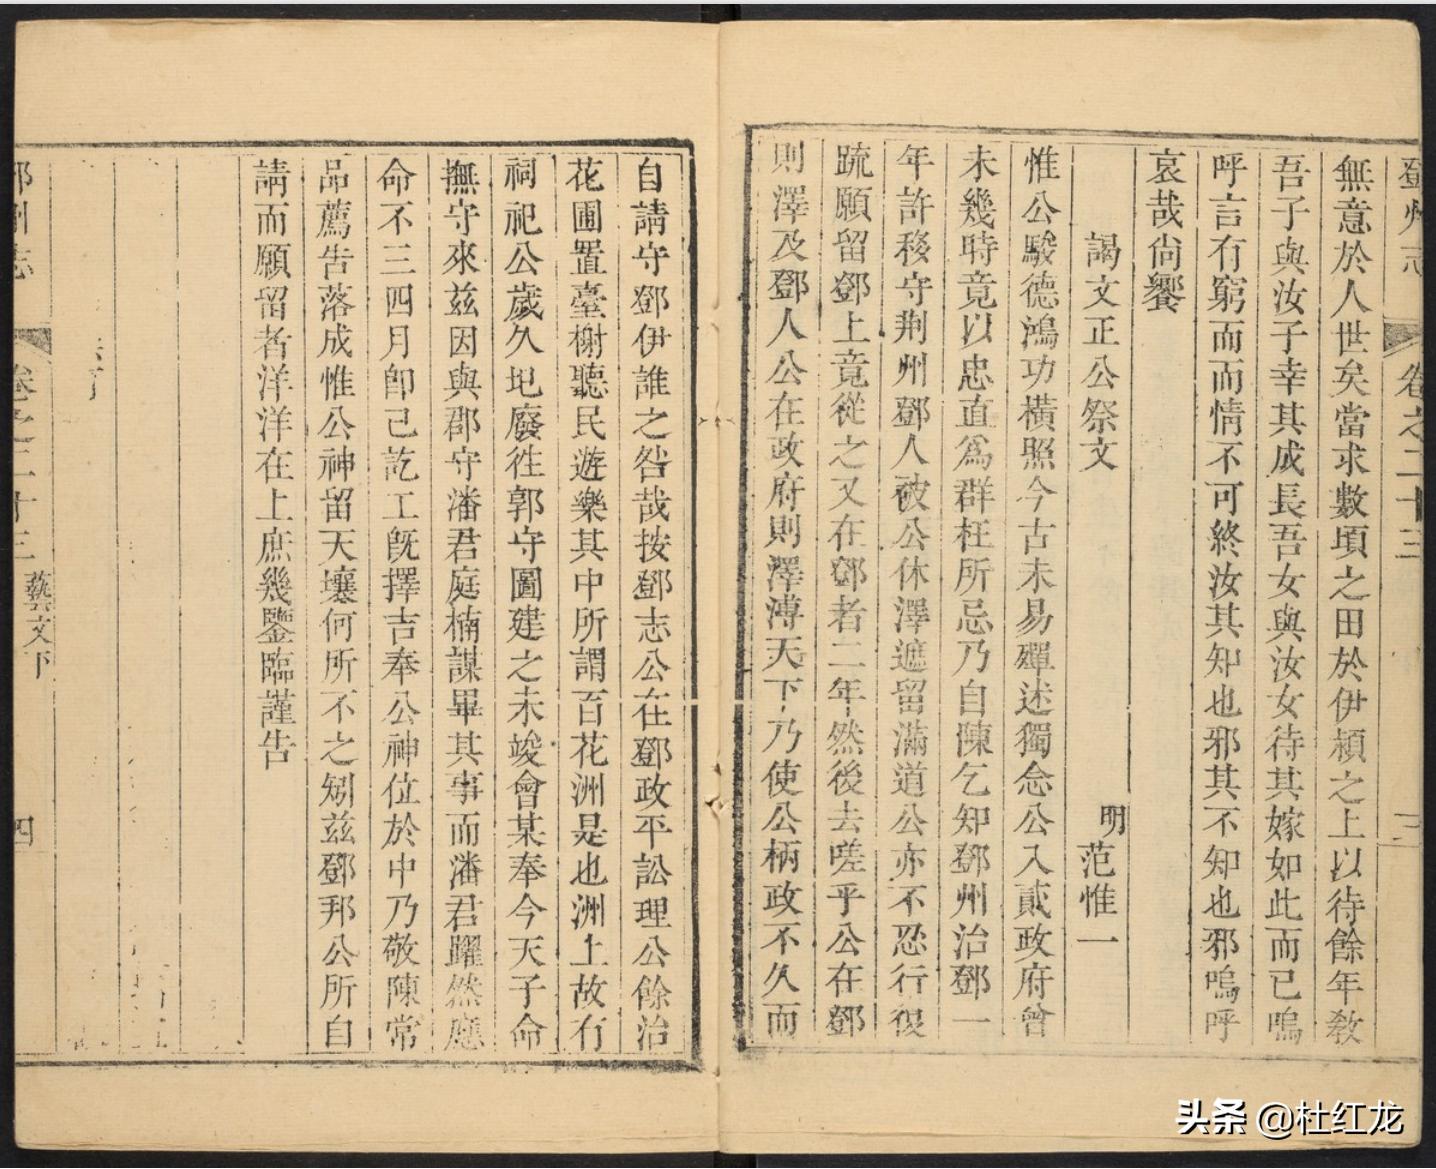 鄧州志 卷之二十三 三
無意於人世矣當求數頃之田於伊潁之上以待餘年教
吾子與汝子幸其成長吾女與汝女待其嫁如此而已嗚
呼言有窮而而情不可終汝其知也邪其不知也邪嗚呼
哀哉尚饗
謁文正公祭文 明 范惟一
惟公駿德鴻功橫照今古未易殫述獨念公入貳政府曾
未幾時竟以忠直爲群枉所忌乃自陳乞知鄧州治鄧一
年許移守荆州鄧人被公休澤遮留滿道公亦不忍行復
䟽願留鄧上竟從之又在鄧者二年然後去嗟乎公在鄧
則澤及鄧人公在政府則澤溥天下乃使公柄政不久而
自請守鄧伊誰之咎哉按鄧志公在鄧政平訟理公餘治
花圃置臺榭聽民遊樂其中所謂百花洲是也洲上故有
祠祀公歲久圮廢徃郭守圖建之未竣會某奉今天子命
撫守來兹因與郡守潘君庭楠謀畢其事而潘君躍然應
命不三四月卽已訖工旣擇吉奉公神位於中乃敬陳常
品薦告落成惟公神留天壤何所不之矧兹鄧邦公所自
請而願留者洋洋在上庶幾鑒臨謹告
鄧州志 卷之二十三 藝文下 四
头条 @杜红龙